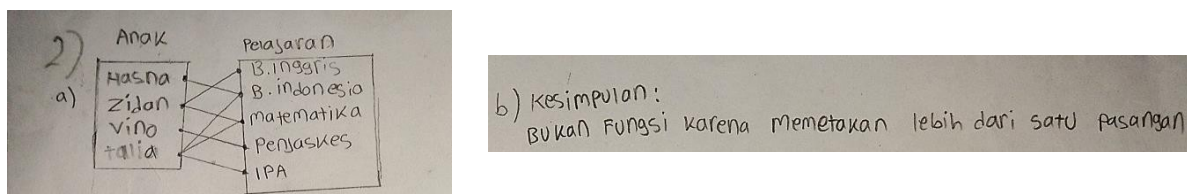 2)
Anak
Pelajaran
a)
Hasna
Zidan
Vino
talia
B. inggris
B. indonesia
matematika
Penjaskes
IPA
b) Kesimpulan :
Bukan Fungsi karena memetakan lebih dari satu pasangan